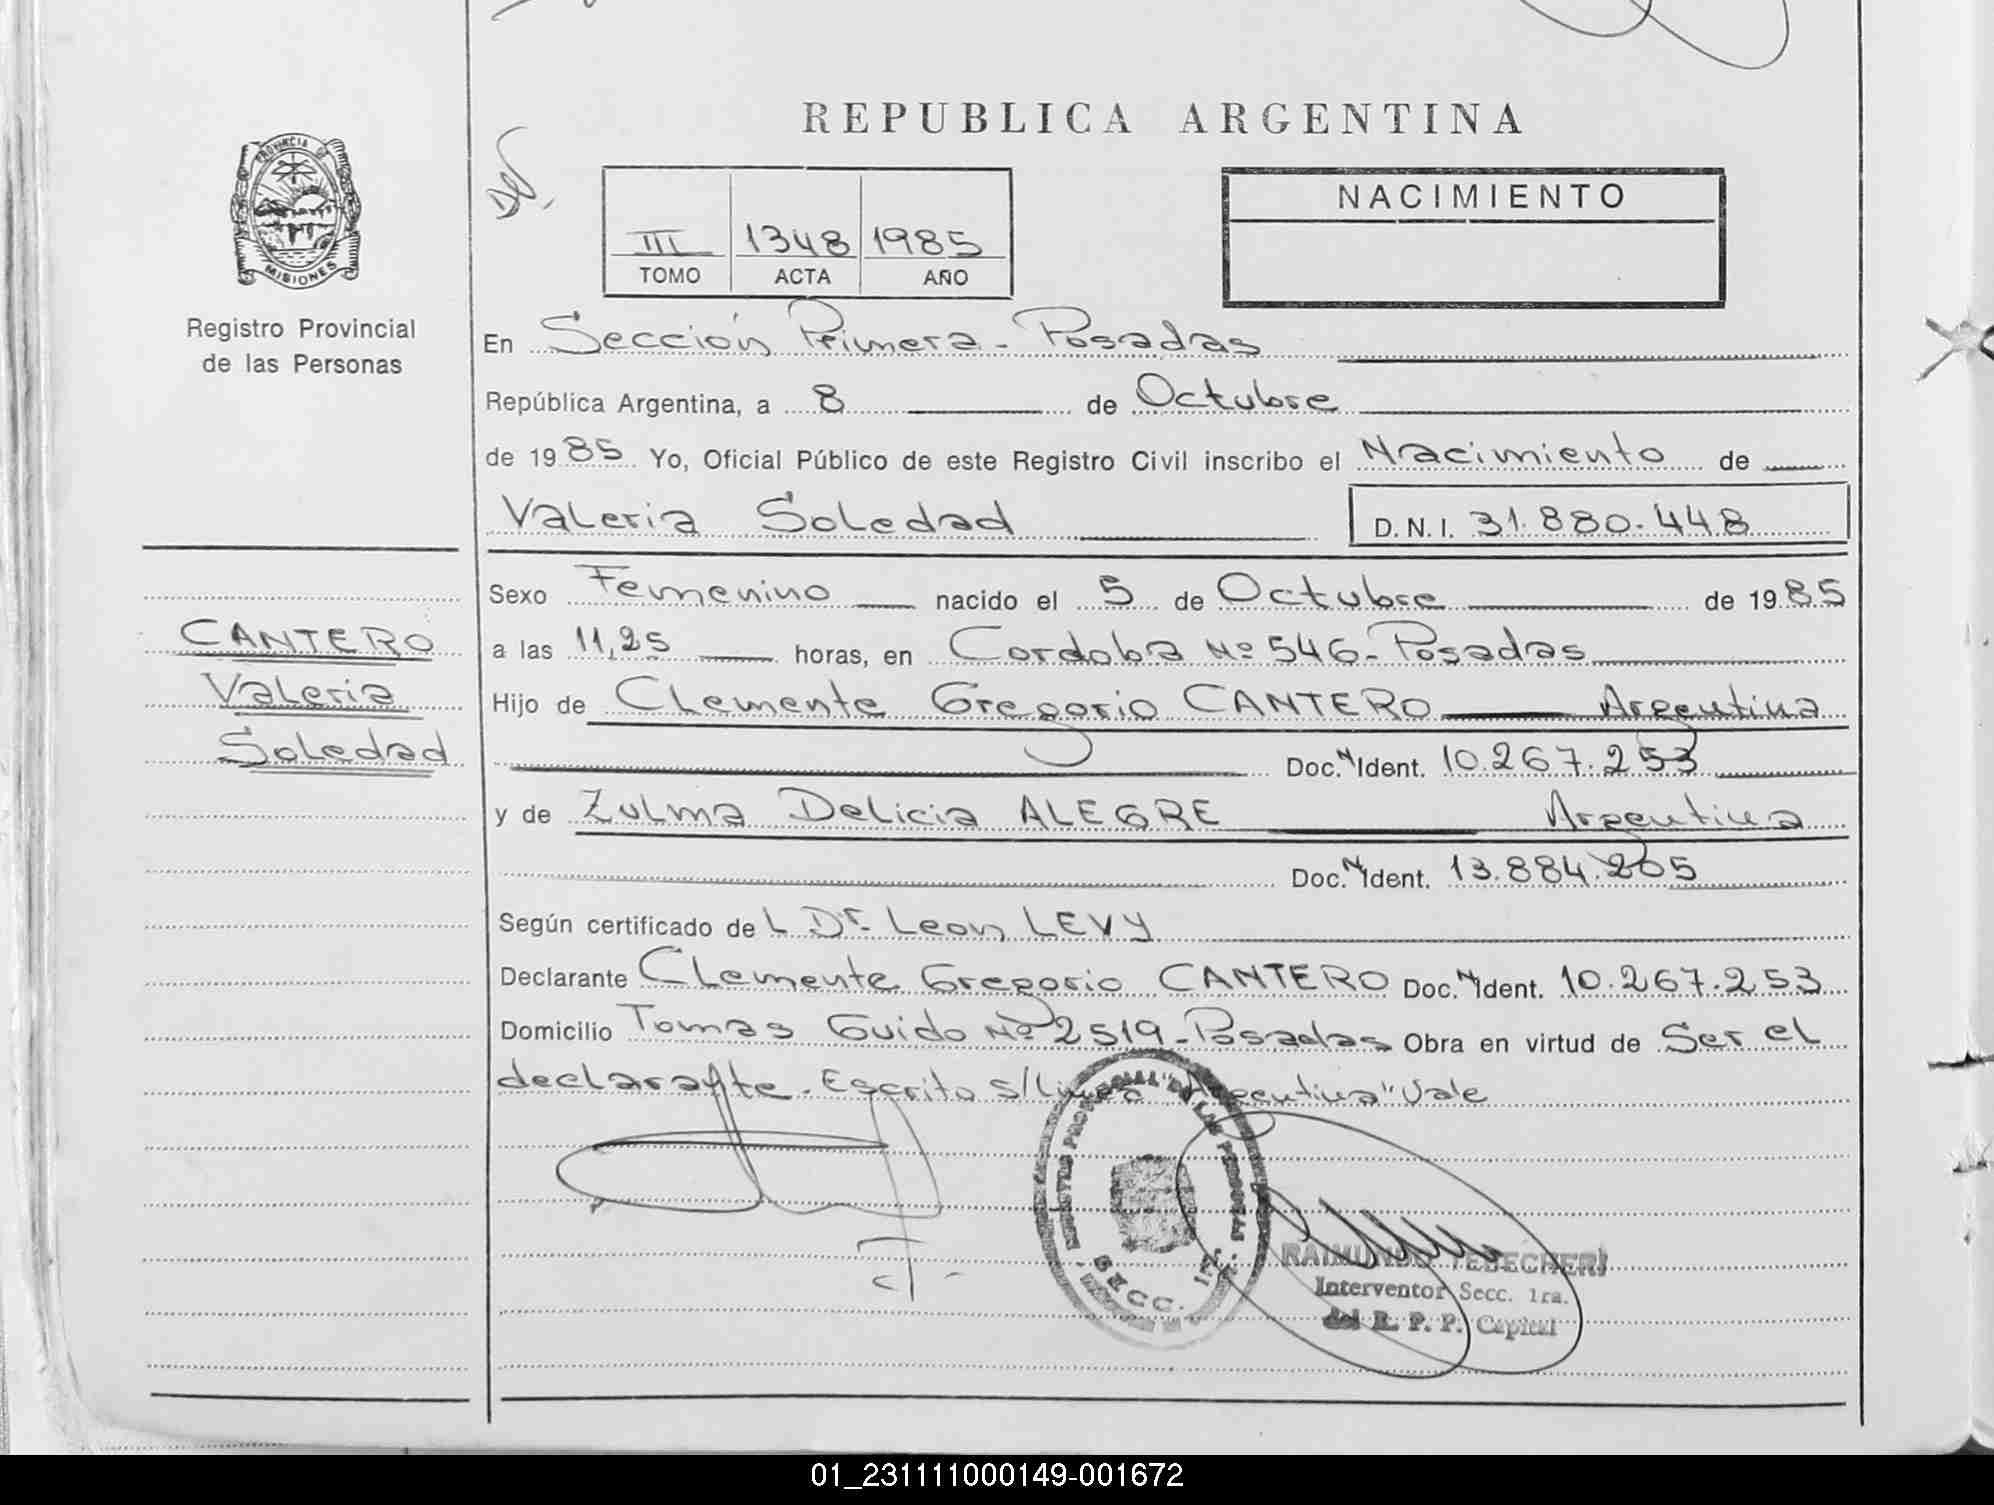 REPUBLICA ARGENTINA
PROVINCIA DE
MISIONES
Registro Provincial
de las Personas
III 1348 1985
TOMO ACTA AÑO
NACIMIENTO
En Sección Primera - Posadas
República Argentina, a 8 de Octubre
de 1985 Yo, Oficial Público de este Registro Civil inscribo el Nacimiento de
Valeria Soledad D.N.I. 31.880.448
CANTERO
Valeria
Soledad
Sexo Femenino nacido el 5 de Octubre de 1985
a las 11,25 horas, en Cordoba Nº 546 - Posadas
Hijo de Clemente Gregorio CANTERO Argentina
Doc. N Ident. 10.267.253
y de Zulma Delicia ALEGRE Argentina
Doc. N Ident. 13.884.205
Según certificado de L Dr. Leon LEVY
Declarante Clemente Gregorio CANTERO Doc. N Ident. 10.267.253
Domicilio Tomas Guido Nº 2519 - Posadas Obra en virtud de Ser el
declarante. Escrito s/Linea "Argentina" Vale
SECC.
RAIMUNDO
Interventor Secc. 1ra.
del R. P. P. Capital
01_231111000149-001672